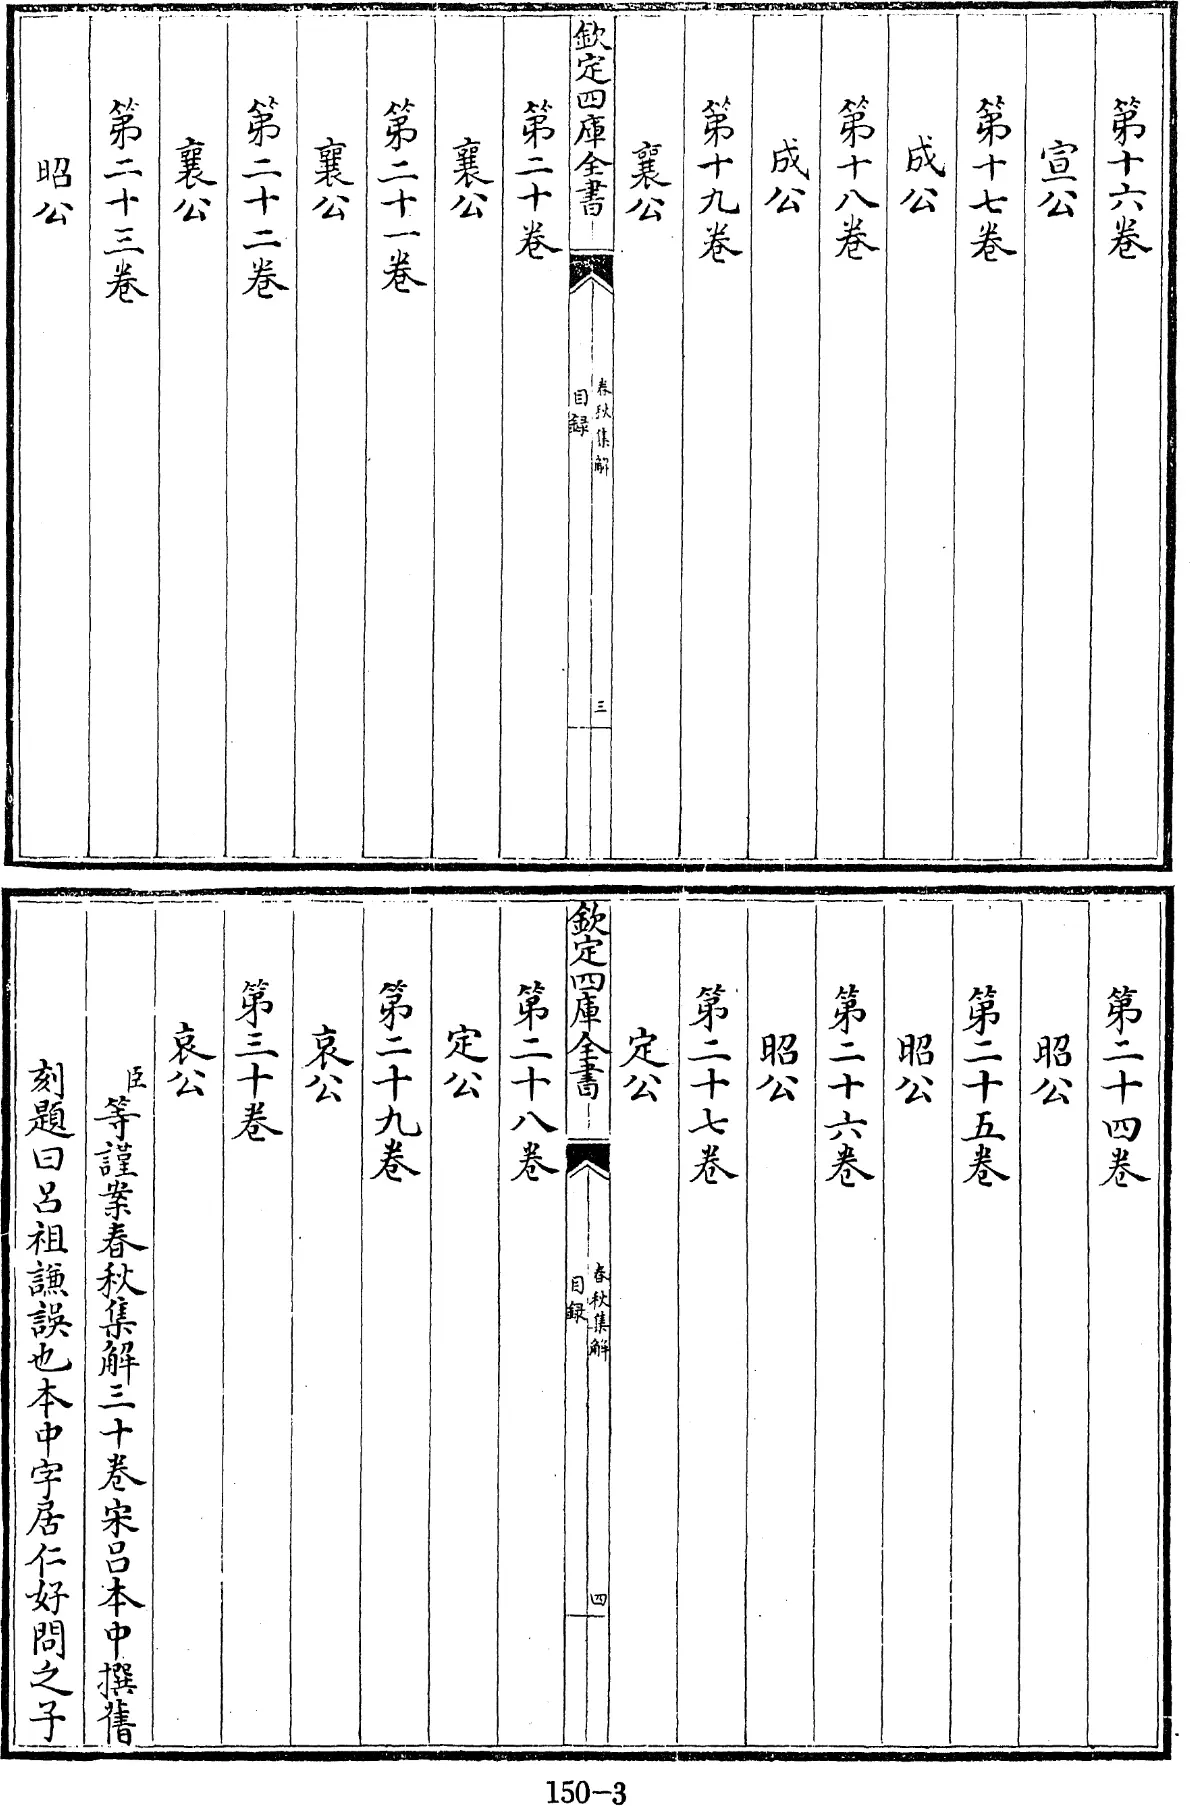 第十六卷
宣公
第十七卷
成公
第十八卷
成公
第十九卷
襄公
欽定四庫全書
春秋集解
目録
三
第二十卷
襄公
第二十一卷
襄公
第二十二卷
襄公
第二十三卷
昭公
第二十四卷
昭公
第二十五卷
昭公
第二十六卷
昭公
第二十七卷
定公
欽定四庫全書
春秋集解
目録
四
第二十八卷
定公
第二十九卷
哀公
第三十卷
哀公
臣等謹案春秋集解三十卷宋吕本中撰舊
刻題曰吕祖謙誤也本中字居仁好問之子
150-3